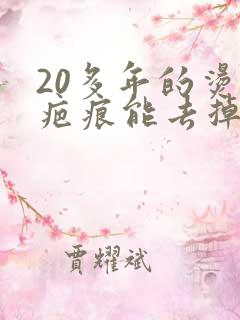 20多年的燙
疤痕能去掉
賈耀斌